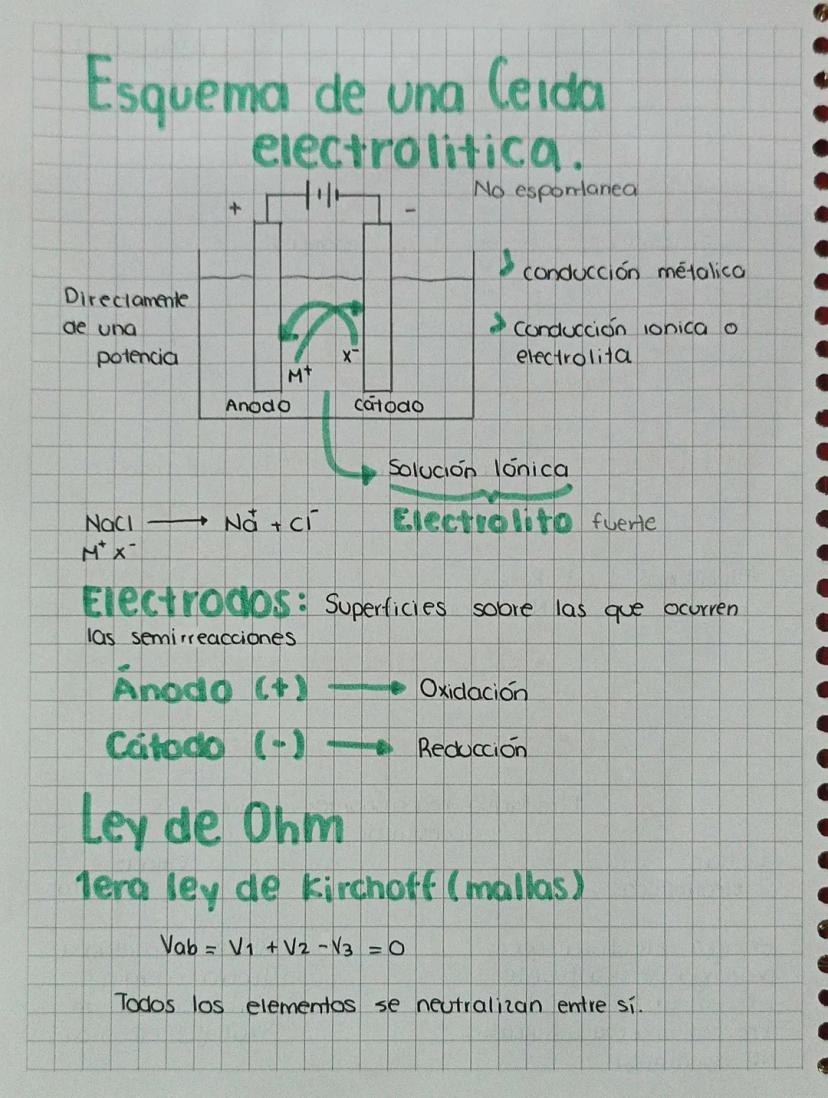 Esquema de una Celda
electrolitica.
No espontanea
+
-
conducción métalica
Directamente
de una
potencia
Conducción ionica o
electrolita
M+
X-
Anodo
Cátodo
Solución Iónica
NaCl → Na+ + Cl-
Electrolito fuerte
M+ X-
Electrodos: Superficies sobre las que ocurren
las semirreacciones
Ánodo (+) → Oxidación
Cátodo (-) → Reducción
Ley de Ohm
1era ley de Kirchoff (mallas)
Vab = V1 + V2 - V3 = 0
Todos los elementos se neutralizan entre sí.